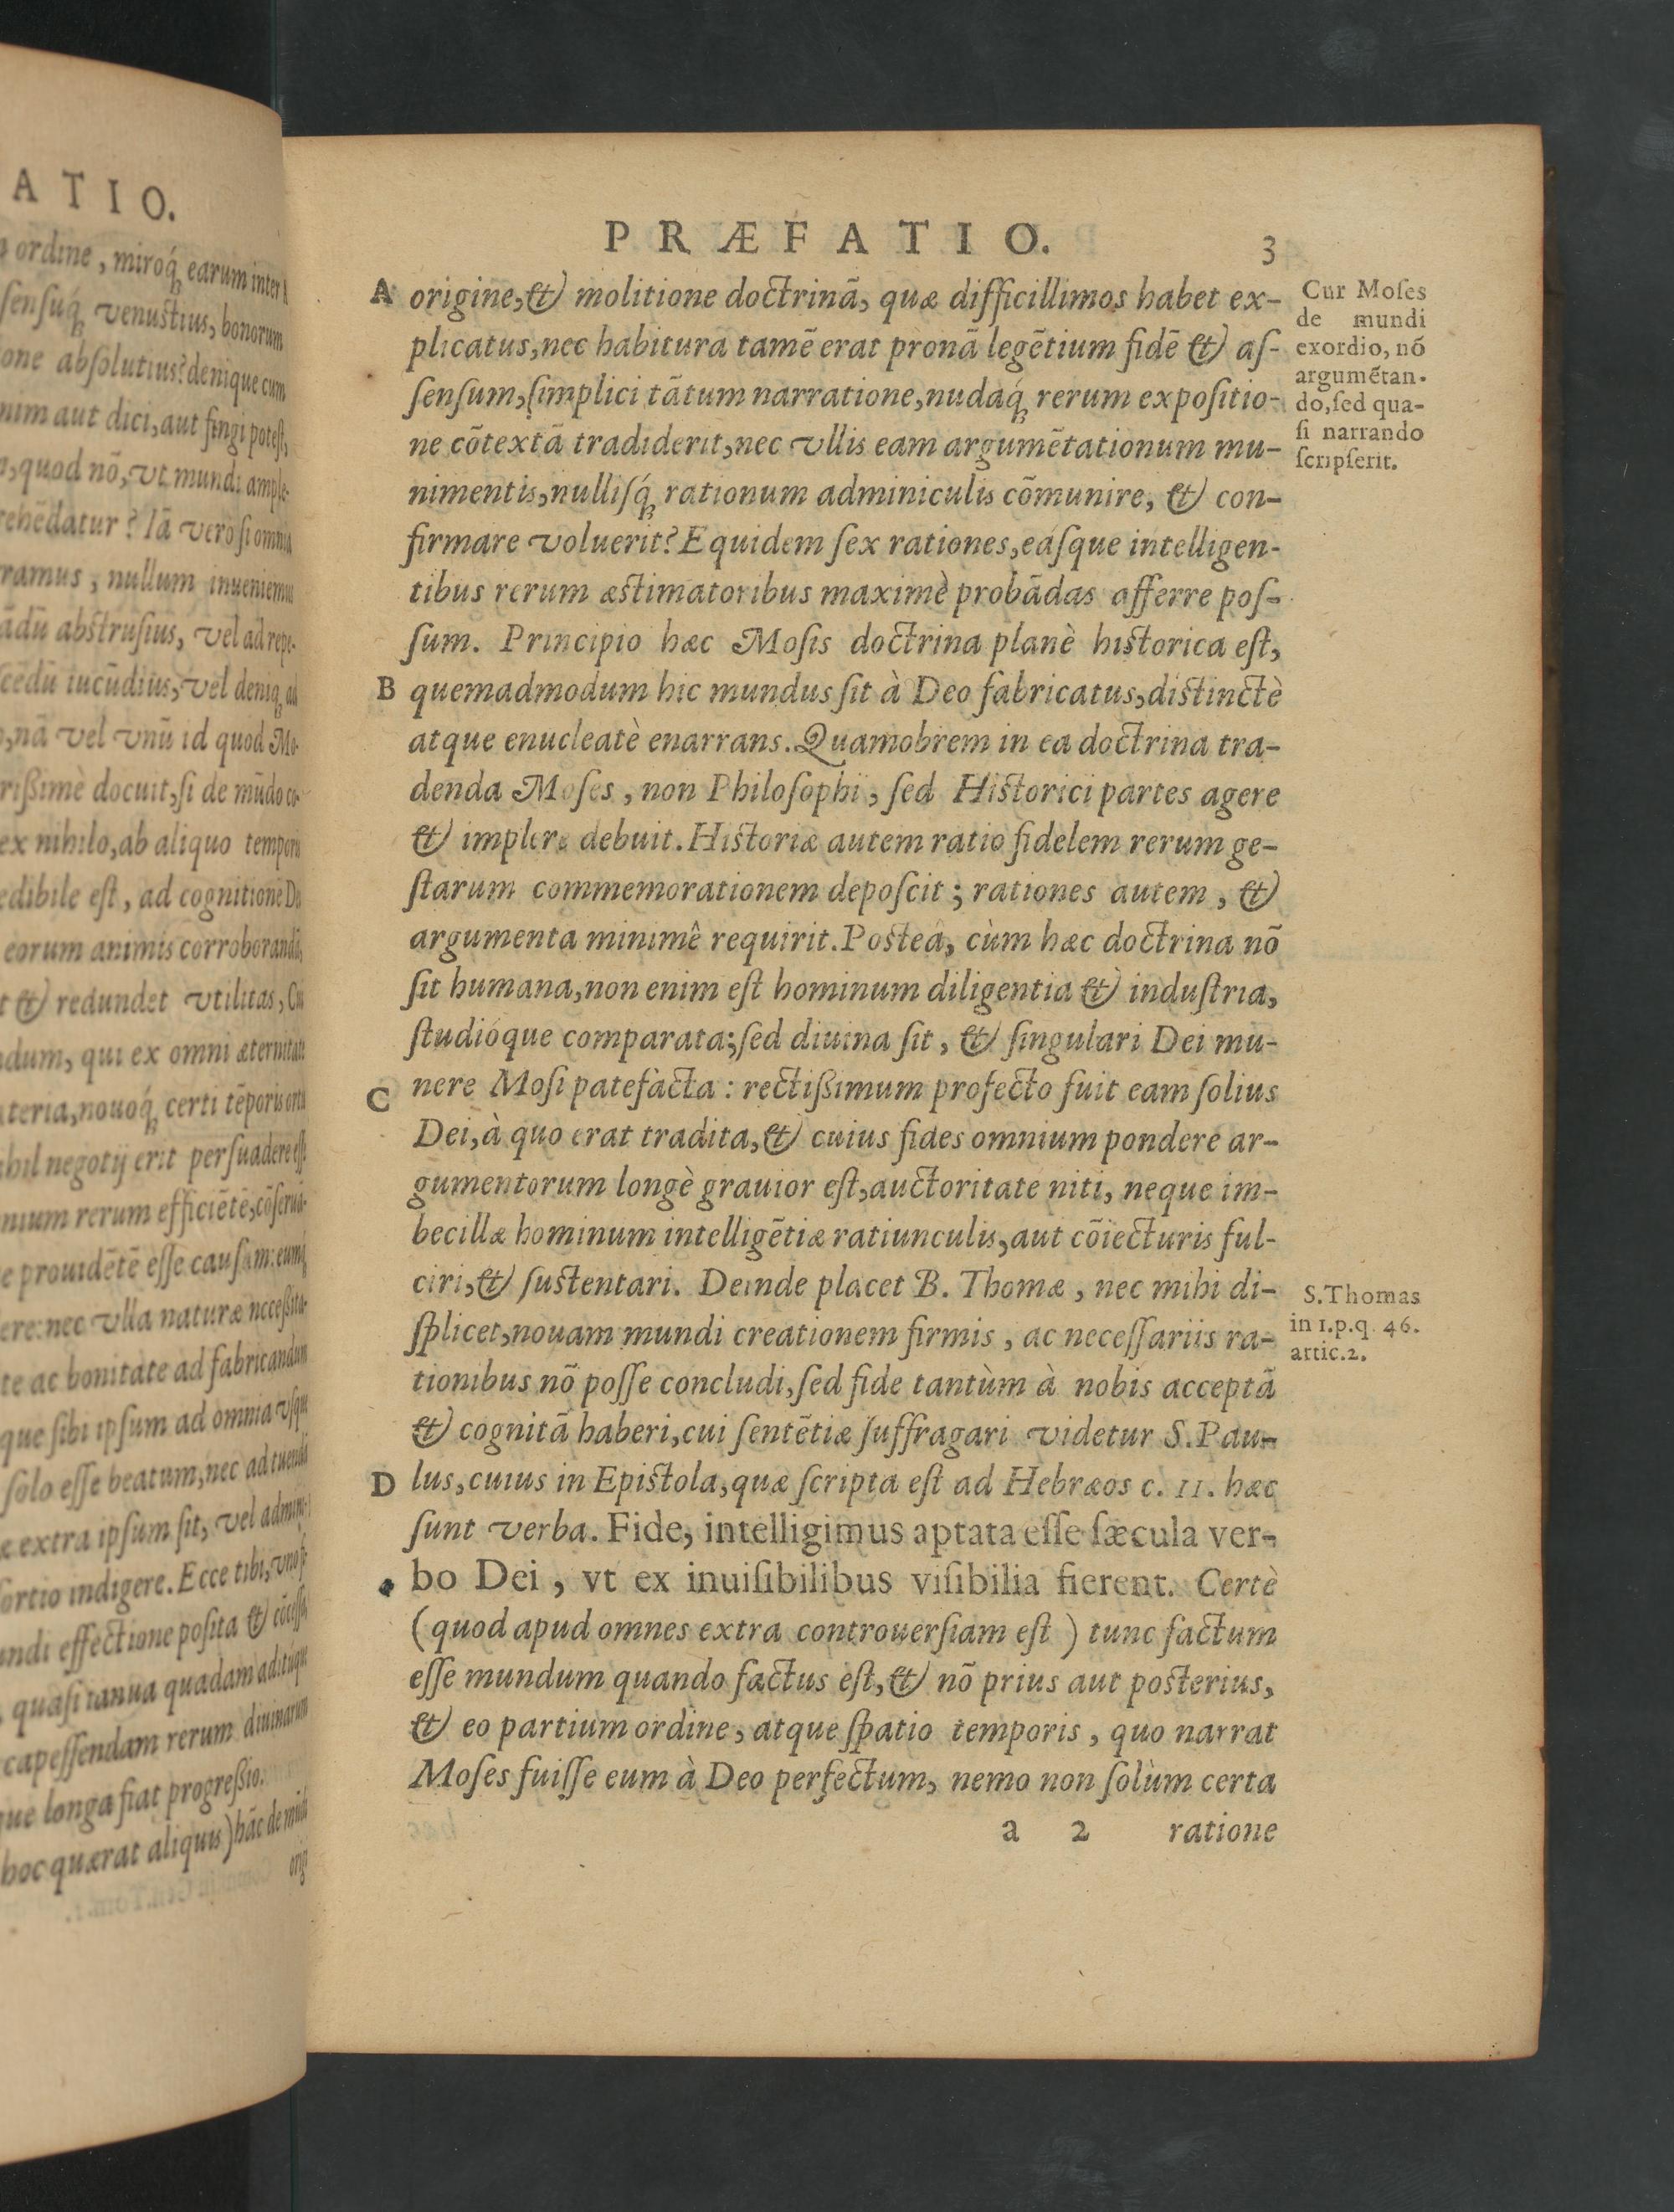 ATIO.
ordine, miroq́ȝ earum inter
ſenſuq́ȝ venuſtius, bonorum
one abſolutius? denique cum
nim aut dici, aut fingi poteſt,
quod nō, vt mundi
? Iā vero ſi omnia
ramus, nullum inueniemus
abſtruſius, vel ad repe-
iucūdius, vel deniqȝ ad
nā vel vnū id quod Mo-
rißimè docuit, ſi de mūdo co-
ex nihilo, ab aliquo temporis
edibile eſt, ad cognitionē De
eorum animis corroborandā,
t & redundet vtilitas, Cu
dum, qui ex omni æternitate
teria, nouoq́ȝ certi tēporis ortu
hil negotij erit perſuadere eſſe
nium rerum efficiētē, cōſeruā-
e prouidētē eſſe cauſam: eumq́
ere: nec vlla naturæ neceßita-
te ac bonitate ad fabricandum
que ſibi ipſum ad omnia vſque
ſolo eſſe beatum, nec ad tuendā
extra ipſum ſit, vel admini-
ortio indigere. Ecce tibi, vno
ndi effectione poſita & cōceſſa
quaſi ianua quadam adituque
capeſſendam rerum diuinarum
que longa fiat progreßio.
hoc quærat aliquis) hāc de mūdi
origi
PRÆFATIO. 3
A origine, & molitione doctrinã, quæ difficillimos habet ex-
plicatus, nec habitura tamē erat pronã legētium fidē & aſ-
ſenſum, ſimplici tãtum narratione, nudaq́ȝ rerum expoſitio-
ne cōtextã tradiderit, nec vllis eam argumētationum mu-
nimentis, nulliſq́ȝ rationum adminiculis cōmunire, & con-
firmare voluerit? Equidem ſex rationes, eáſque intelligen-
tibus rerum æſtimatoribus maximè probãdas afferre poſ-
ſum. Principio hæc Moſis doctrina planè hiſtorica eſt,
B quemadmodum hic mundus ſit à Deo fabricatus, diſtinctè
atque enucleatè enarrans. Quamobrem in ea doctrina tra-
denda Moſes, non Philoſophi, ſed Hiſtorici partes agere
& implere debuit. Hiſtoriæ autem ratio fidelem rerum ge-
ſtarum commemorationem depoſcit; rationes autem, &
argumenta minimê requirit. Poſteà, cùm hæc doctrina nō
ſit humana, non enim eſt hominum diligentia & induſtria,
ſtudióque comparata; ſed diuina ſit, & ſingulari Dei mu-
C nere Moſi patefacta: rectißimum profecto fuit eam ſolius
Dei, à quo erat tradita, & cuius fides omnium pondere ar-
gumentorum longè grauior eſt, auctoritate niti, neque im-
becillæ hominum intelligētiæ ratiunculis, aut cōiecturis ful-
ciri, & ſuſtentari. Deinde placet B. Thomæ, nec mihi di-
ſplicet, nouam mundi creationem firmis, ac neceſſariis ra-
tionibus nō poſſe concludi, ſed fide tantùm à nobis acceptã
& cognitã haberi, cui ſentētiæ ſuffragari videtur S. Pau-
D lus, cuius in Epiſtola, quæ ſcripta eſt ad Hebræos c. 11. hæc
ſunt verba. Fide, intelligimus aptata eſſe ſæcula ver-
bo Dei, vt ex inuiſibilibus viſibilia fierent. Certè
(quod apud omnes extra controuerſiam eſt) tunc factum
eſſe mundum quando factus eſt, & nō prius aut poſterius,
& eo partium ordine, atque ſpatio temporis, quo narrat
Moſes fuiſſe eum à Deo perfectum, nemo non ſolùm certa
a 2 ratione
Cur Moſes
de mundi
exordio, nō
argumētan-
do, ſed qua-
ſi narrando
ſcripſerit.
S. Thomas
in 1. p. q. 46.
artic. 2.